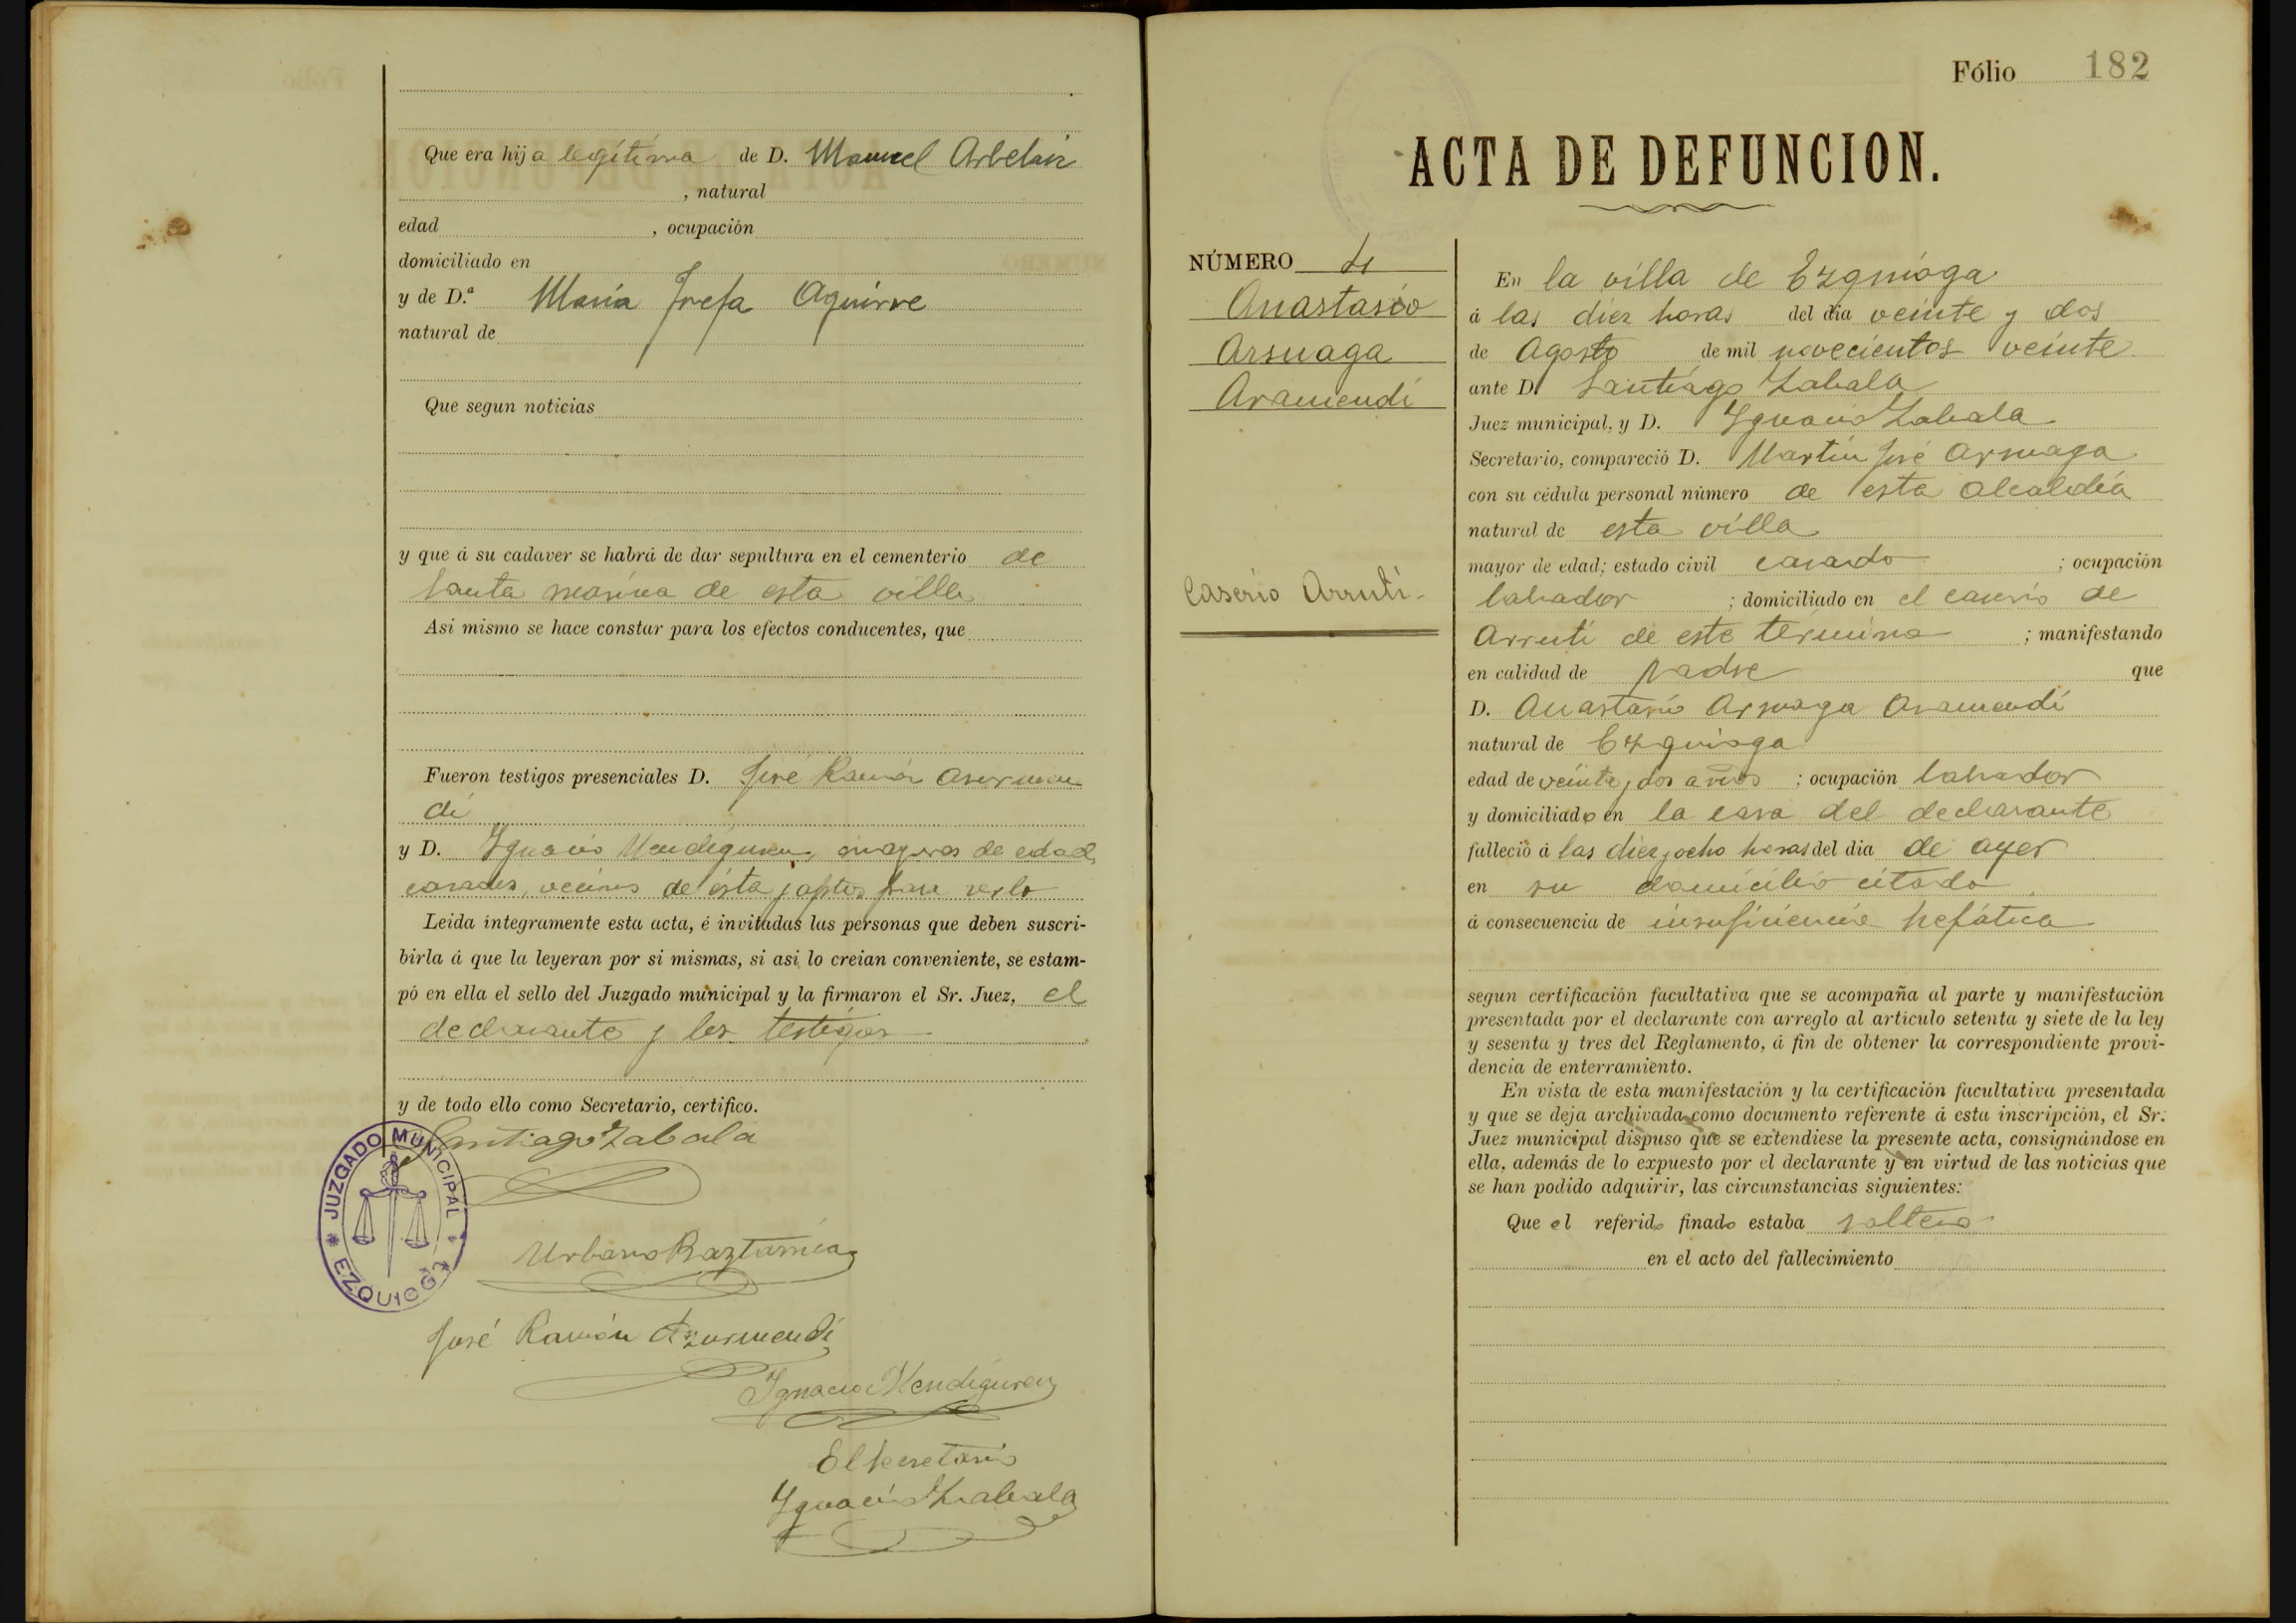 Que era hija legítima de D. Manuel Arbelaiz
, natural
edad , ocupación
domiciliado en
y de D.ª María Josefa Aguirre
natural de
Que segun noticias
y que á su cadaver se habrá de dar sepultura en el cementerio de
Santa Marina de esta villa
Asi mismo se hace constar para los efectos conducentes, que
Fueron testigos presenciales D. José Ramón Asurmen
di
y D. Ignacio Mendiguren, mayores de edad,
casados, vecinos de ésta y aptos para serlo
Leida íntegramente esta acta, é invitadas las personas que deben suscri-
birla á que la leyeran por si mismas, si asi lo creian conveniente, se estam-
pó en ella el sello del Juzgado municipal y la firmaron el Sr. Juez, el
declarante y los testigos
y de todo ello como Secretario, certifico.
Santiago Zabala
JUZGADO MUNICIPAL
EZQUIOGA
Urbano
José Ramón Azurmendi
Ignacio Mendiguren
El Secretario
Ygnacio Zabala
Fólio 182
ACTA DE DEFUNCION.
NÚMERO 4
Anastasio
Arsuaga
Aramendi
Caserio Arruti.
En la villa de Ezquioga
á las diez horas del dia veinte y dos
de Agosto de mil novecientos veinte
ante D. Santiago Zabala
Juez municipal, y D. Ygnacio Zabala
Secretario, compareció D. Martín José Arsuaga
con su cédula personal número de esta alcaldía
natural de esta villa
mayor de edad; estado civil casado ; ocupación
labrador ; domiciliado en el caserío de
Arruti de este término ; manifestando
en calidad de padre que
D. Anastasio Arsuaga Aramendi
natural de Ezquioga
edad de veinte y dos años ; ocupación labrador
y domiciliado en la casa del declarante
falleció á las diez y ocho horas del dia de ayer
en su domicilio citado
á consecuencia de insuficiencia hepática
segun certificación facultativa que se acompaña al parte y manifestación
presentada por el declarante con arreglo al artículo setenta y siete de la ley
y sesenta y tres del Reglamento, á fin de obtener la correspondiente provi-
dencia de enterramiento.
En vista de esta manifestación y la certificación facultativa presentada
y que se deja archivada como documento referente á esta inscripción, el Sr.
Juez municipal dispuso que se extendiese la presente acta, consignándose en
ella, además de lo expuesto por el declarante y en virtud de las noticias que
se han podido adquirir, las circunstancias siguientes:
Que el referido finado estaba soltero
en el acto del fallecimiento